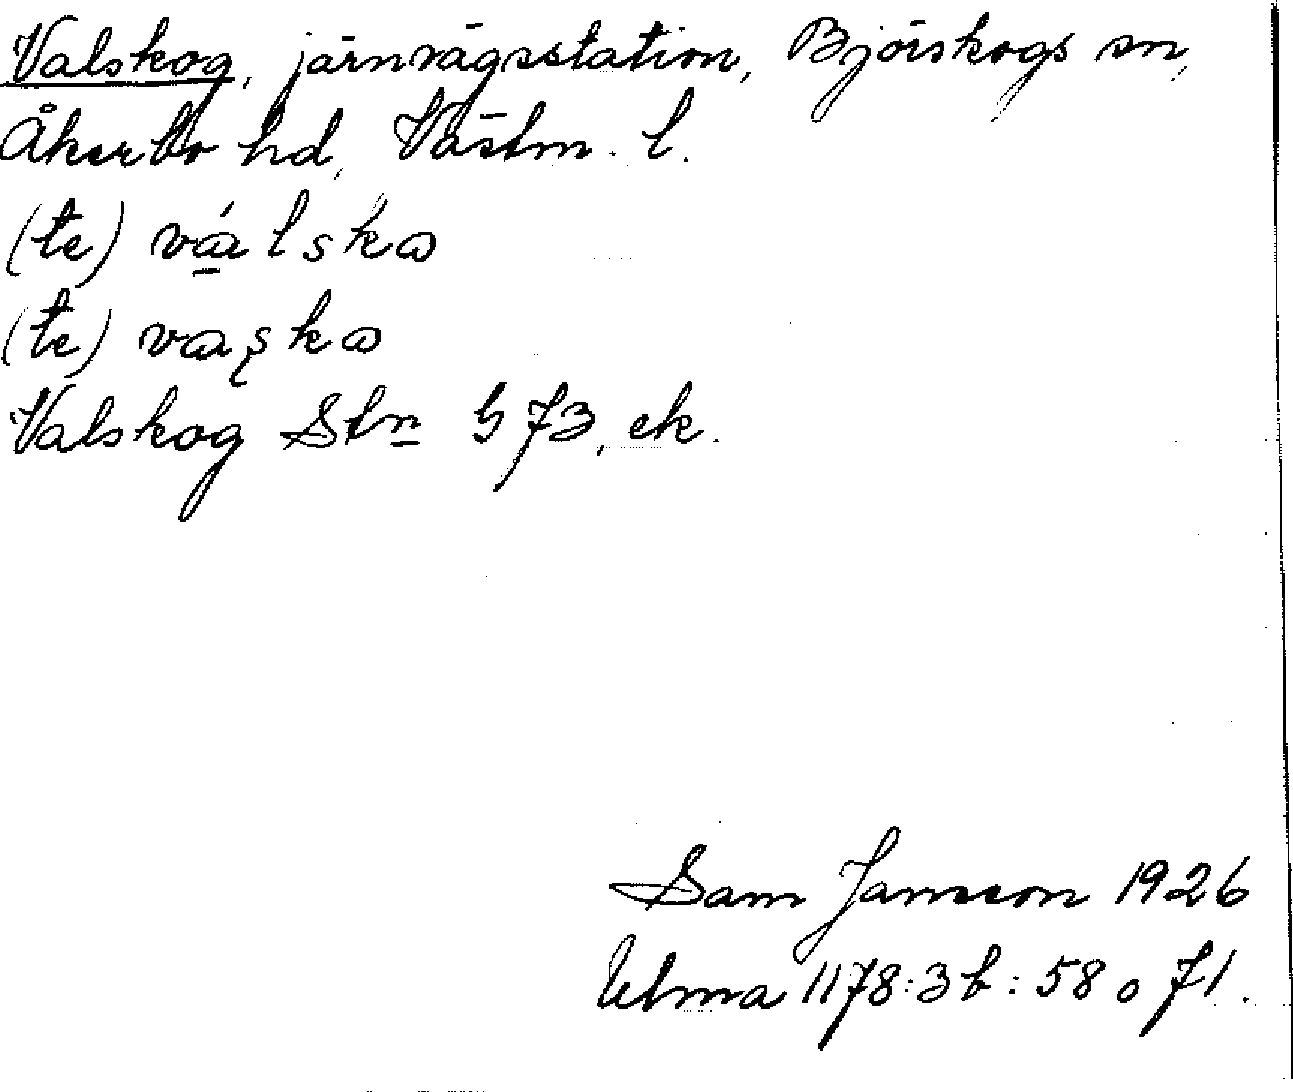 Valskog, järnvägsstation, Björskogs sn,
Åkerbo hd, Västm. l.
(te) válska
(te) vaʂka
Valskog Stn 573, ek.
Sam Jansson 1926
Ulma 1178:3b:58 o 71.